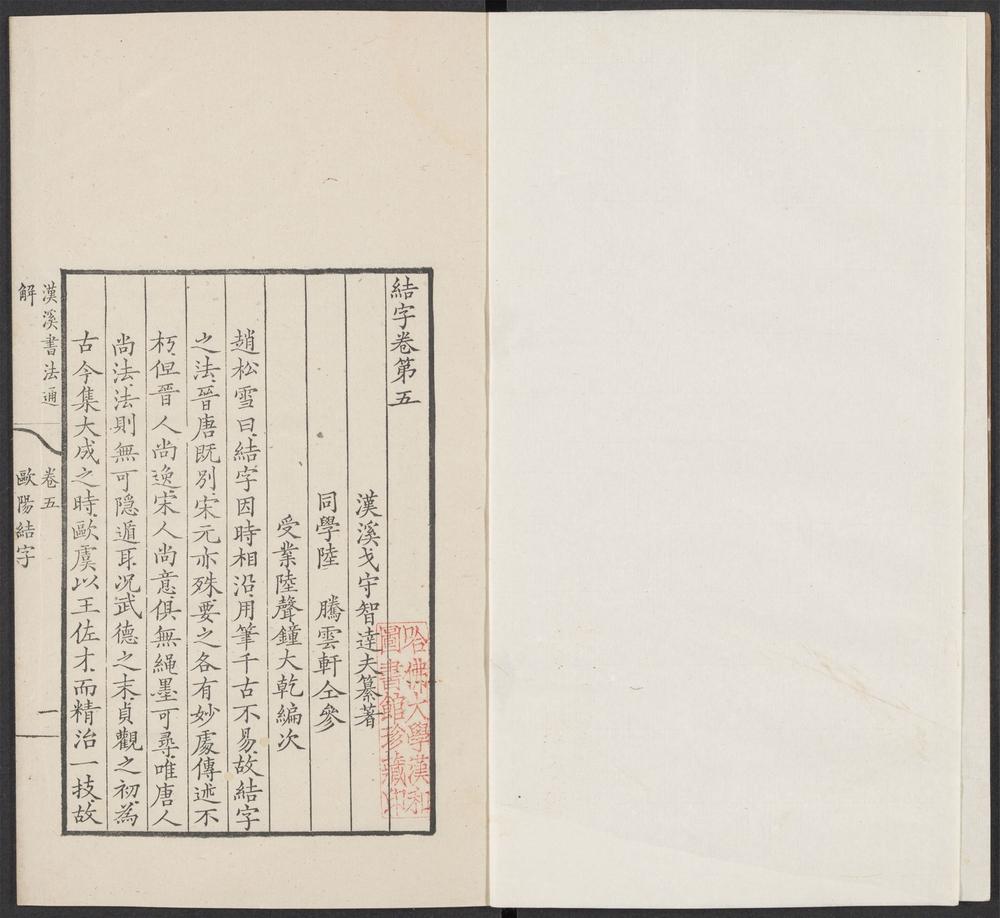 結字卷第五
漢溪戈守智達夫纂著
同學陸　騰雲軒仝參
受業陸聲鐘大乾編次
趙松雪曰結字因時相沿用筆千古不易故結字
之法晉唐既別宋元亦殊要之各有妙處傳述不
朽但晉人尚逸宋人尚意俱無繩墨可尋唯唐人
尚法法則無可隐遁耳况武德之末貞觀之初為
古今集大成之時歐虞以王佐才而精治一技故
漢溪書法通
解
卷五
歐陽結字
一
哈佛大學漢和
圖書館珍藏印